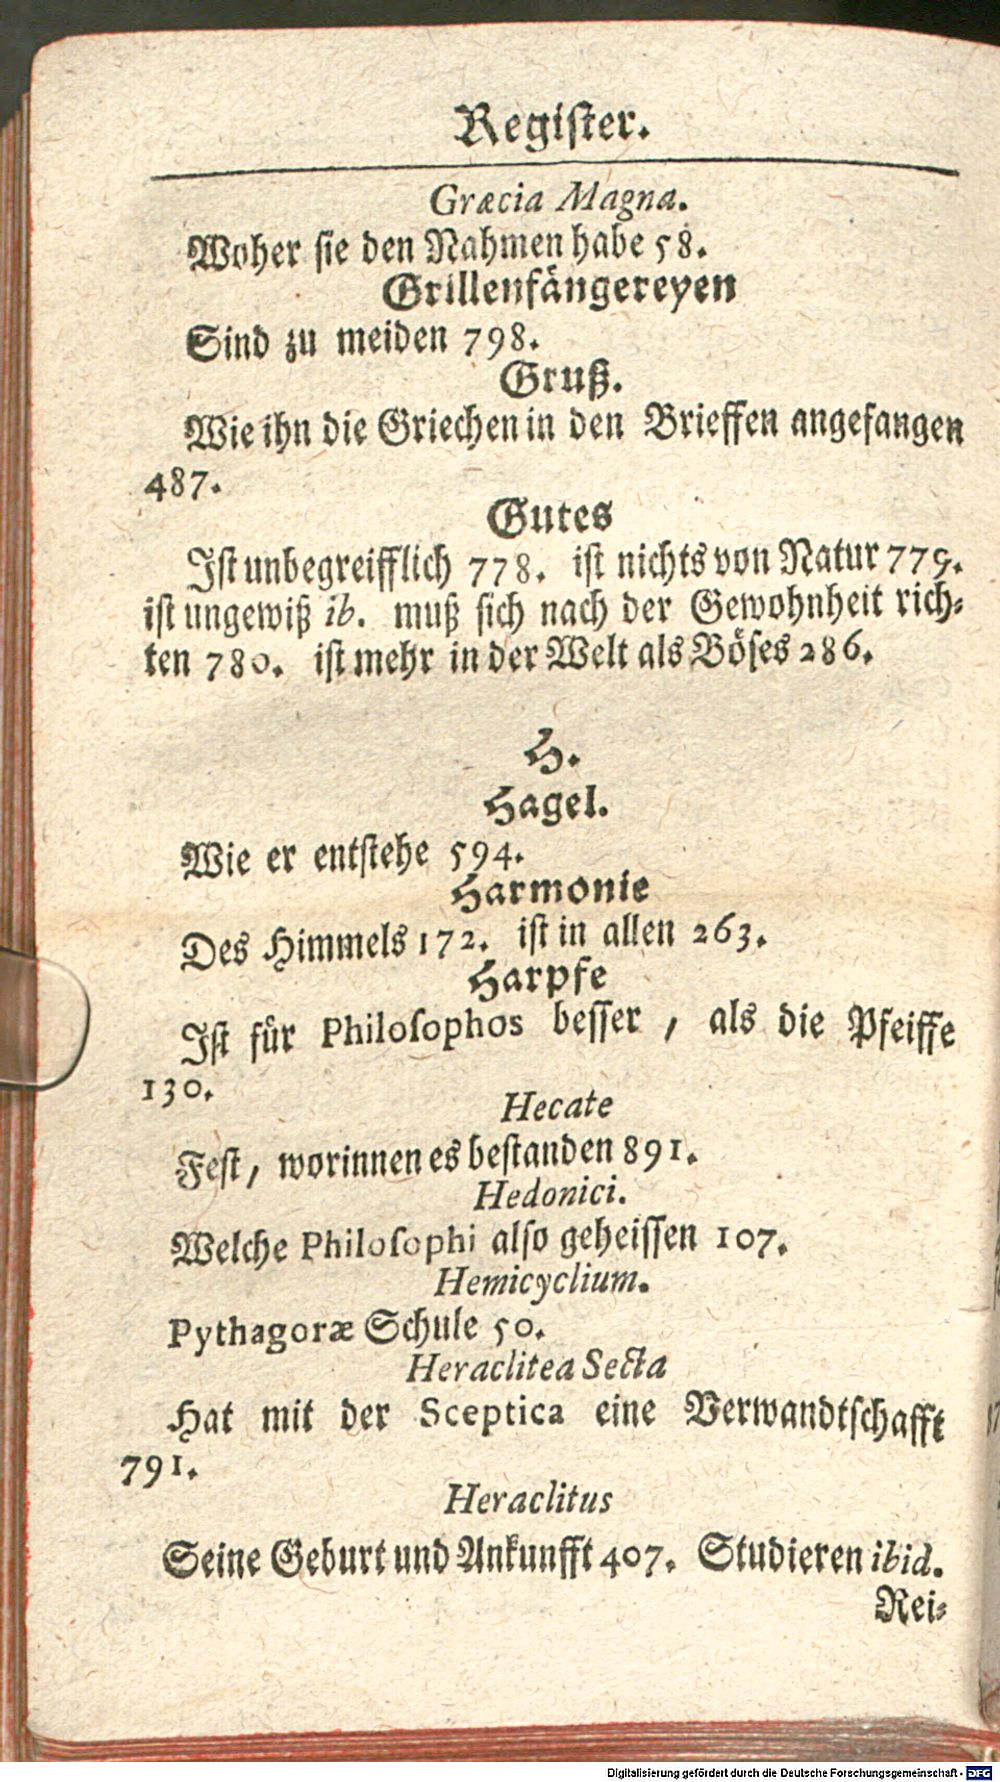 Regiſter.
Græcia Magna.
Woher ſie den Nahmen habe 58.
Grillenfängereyen
Sind zu meiden 798.
Gruß.
Wie ihn die Griechen in den Brieffen angefangen
487.
Gutes
Iſt unbegreifflich 778. iſt nichts von Natur 779.
iſt ungewiß ib. muß ſich nach der Gewohnheit rich⸗
ten 780. iſt mehr in der Welt als Böſes 286.
H.
Hagel.
Wie er entſtehe 594.
Harmonie
Des Himmels 172. iſt in allen 263.
Harpfe
Iſt für Philoſophos beſſer, als die Pfeiffe
130.
Hecate
Feſt, worinnen es beſtanden 891.
Hedonici.
Welche Philoſophi alſo geheiſſen 107.
Hemicyclium.
Pythagoræ Schule 50.
Heraclitea Secta
Hat mit der Sceptica eine Verwandtſchafft
791.
Heraclitus
Seine Geburt und Ankunfft 407. Studieren ibid.
Rei⸗
Digitalisierung gefördert durch die Deutsche Forschungsgemeinschaft - DFG